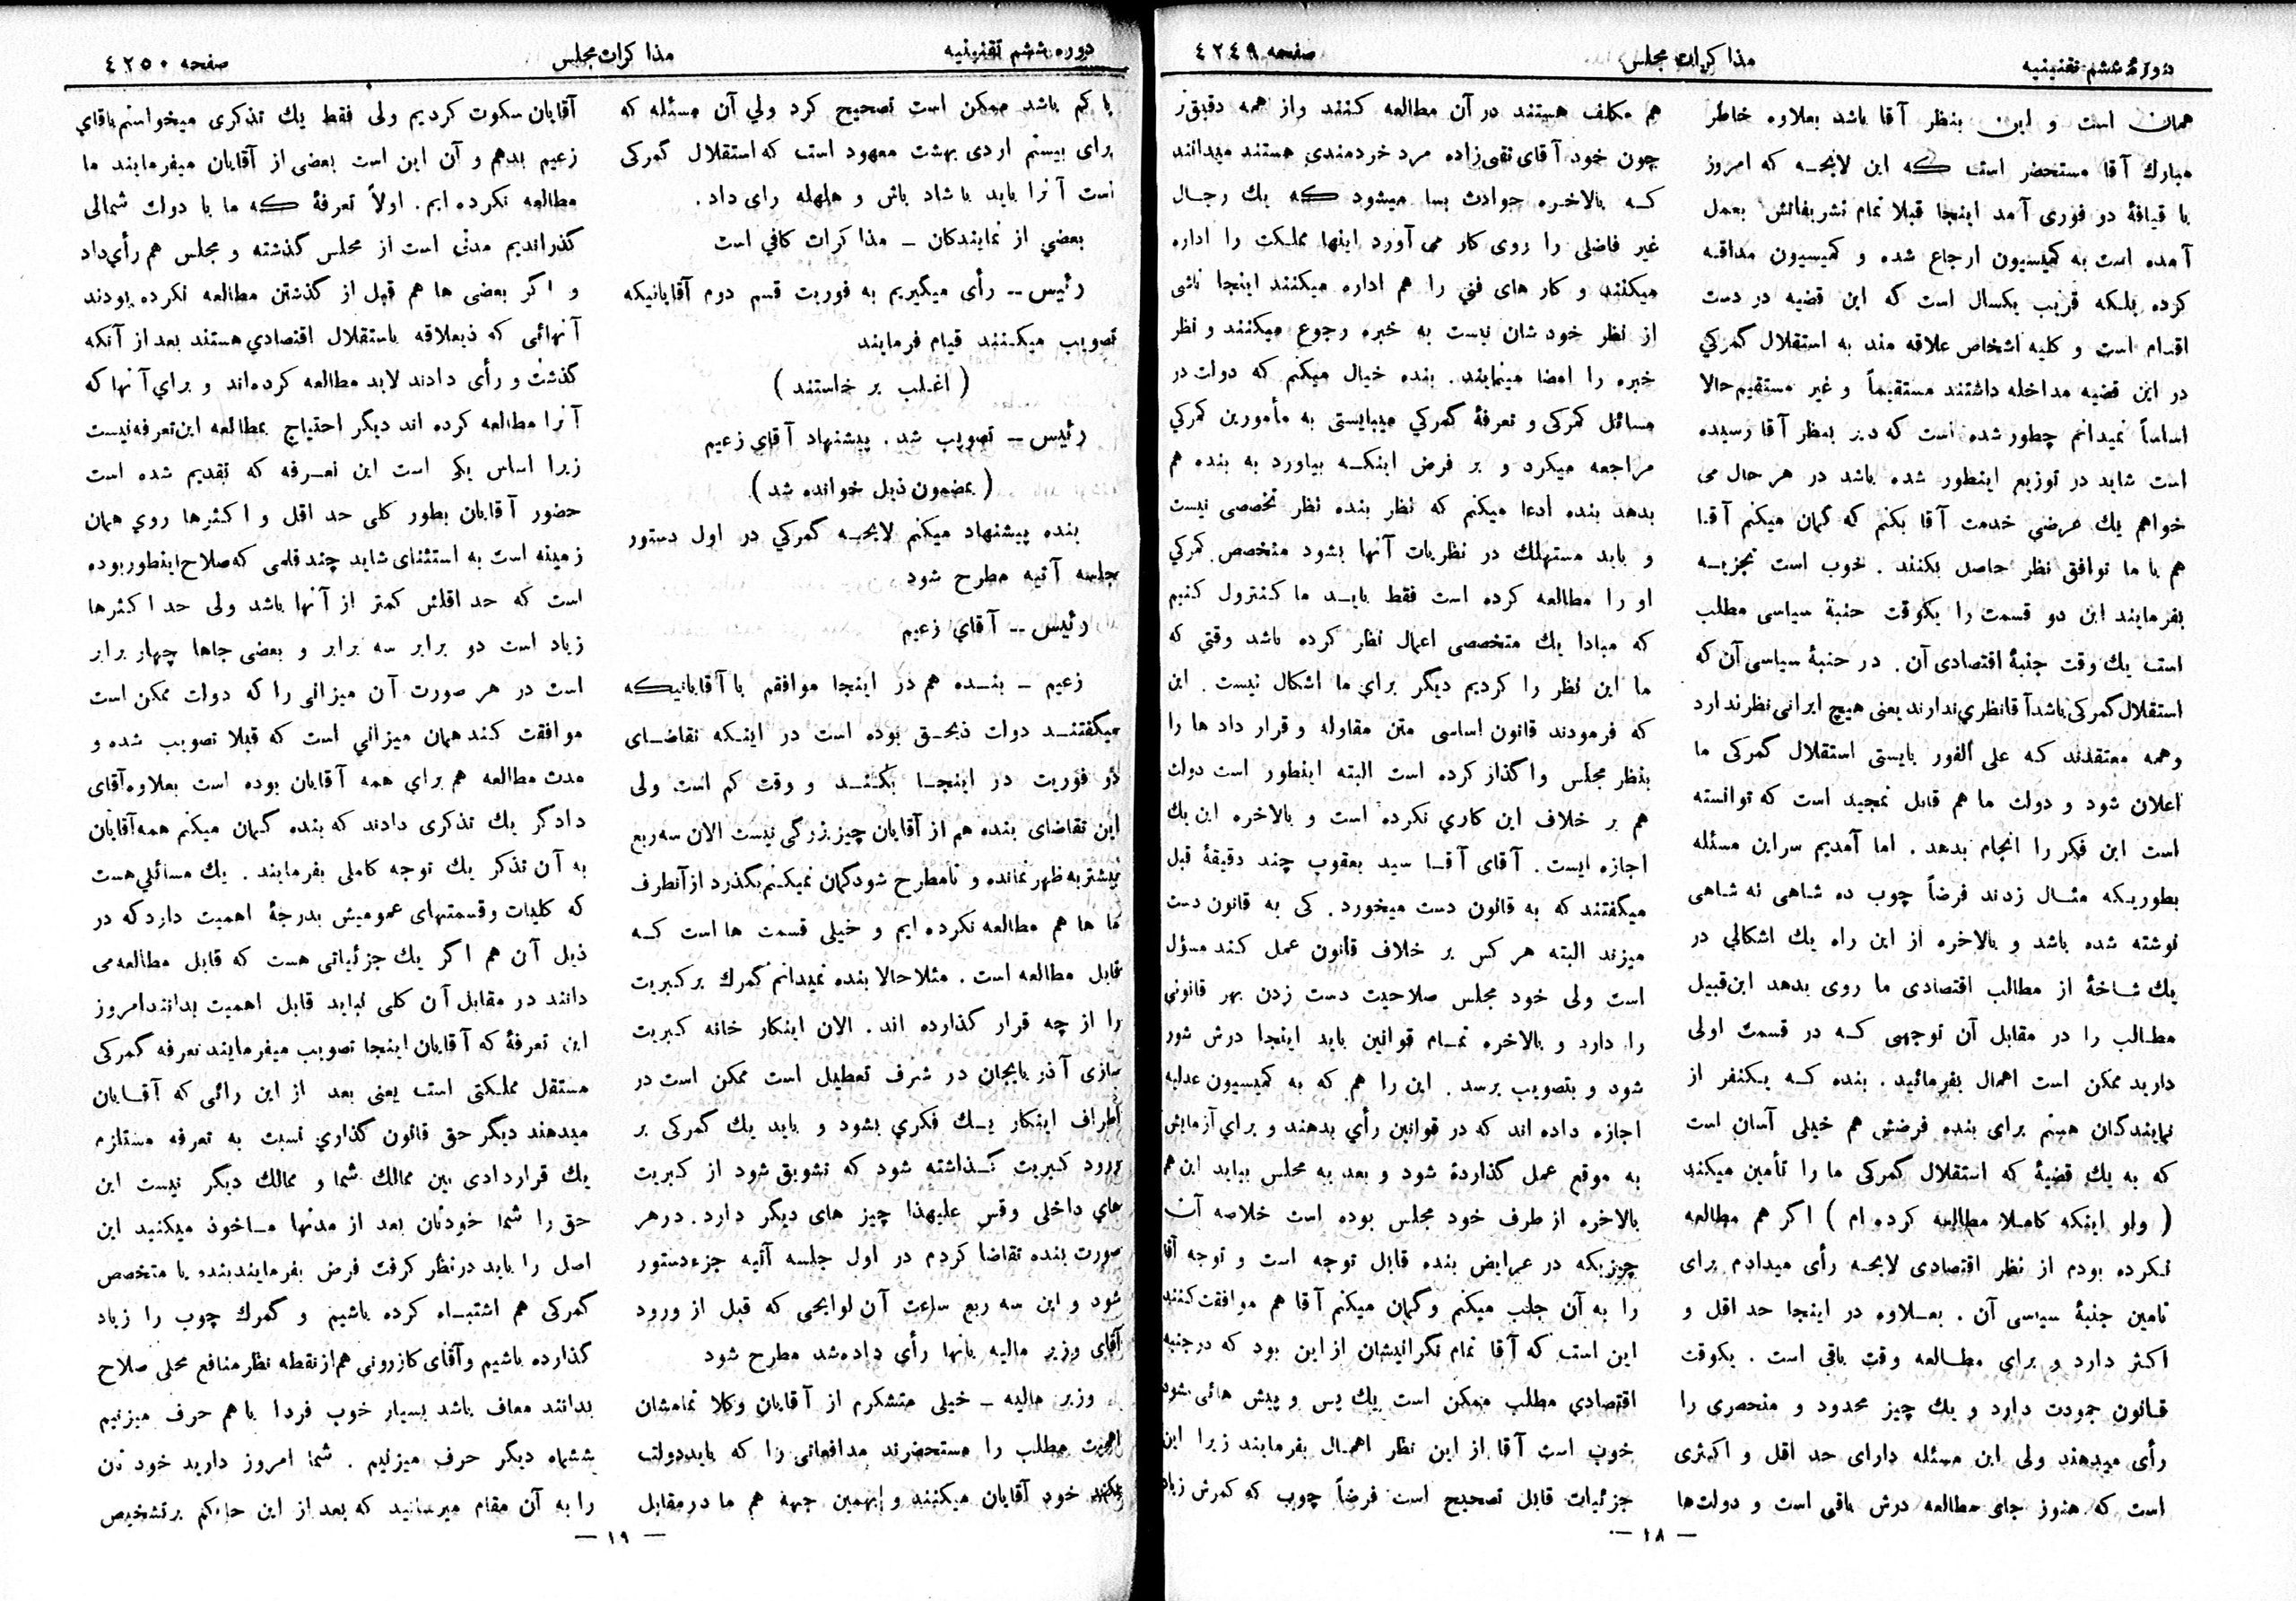 دورهٔ ششم تقنینیه
مذاکرات مجلس
صفحه ٤٢٤٩
همان است و این بنظر آقا باشد بعلاوه خاطر
مبارك آقا مستحضر است که این لایحه که امروز
با قیافهٔ دو فوری آمد اینجا قبلا تمام تشریفاتش بعمل
آمده است به کمیسیون ارجاع شده و کمیسیون مداقه
کرده بلکه قریب یکسال است که این قضیه در دست
اقدام است و کلیه اشخاص علاقه مند به استقلال گمرکي
در این قضیه مداخله داشتند مستقیماً و غیر مستقیم حالا
اساساً نمیدانم چطور شده است که دیر بنظر آقا رسیده
است شاید در توزیع اینطور شده باشد در هر حال می
خواهم یك عرضي خدمت آقا بکنم که گمان میکنم آقا
هم با ما توافق نظر حاصل بکنند . خوب است تجزیه
بفرمایند این دو قسمت را یکوقت جنبهٔ سیاسی مطلب
است یك وقت جنبهٔ اقتصادی آن . در جنبهٔ سیاسی آن که
استقلال گمرکی باشد آقا نظري ندارند یعنی هیچ ایرانی نظر ندارد
و همه معتقدند که علی الفور بایستی استقلال گمرکی ما
اعلان شود و دولت ما هم قابل تمجید است که توانسته
است این فکر را انجام بدهد . اما آمدیم سر این مسئله
بطوریکه مثال زدند فرضاً چوب ده شاهی نه شاهی
نوشته شده باشد و بالاخره از این راه یك اشکالي در
یك شاخهٔ از مطالب اقتصادی ما روی بدهد این قبیل
مطالب را در مقابل آن توجهی که در قسمت اولی
دارید ممکن است اهمال بفرمائید . بنده که یکنفر از
نمایندگان هستم برای بنده فرضش هم خیلی آسان است
که به یك قضیهٔ که استقلال گمرکی ما را تأمین میکند
( ولو اینکه کاملا مطالعه کرده ام ) اگر هم مطالعه
نکرده بودم از نظر اقتصادی لایحه رأی میدادم برای
تامین جنبهٔ سیاسی آن . بعلاوه در اینجا حد اقل و
اکثر دارد و برای مطالعه وقت باقی است . یکوقت
قانون جمودت دارد و یك چیز محدود و منحصری را
رأی میدهند ولی این مسئله دارای حد اقل و اکثری
است که هنوز جای مطالعه درش باقی است و دولت‌ها
هم مکلف هستند در آن مطالعه کنند واز همه دقیق‌تر
چون خود آقای تقی‌زاده مرد خردمندی هستند میدانند
که بالاخره حوادث بسا میشود که یك رجال
غیر فاضلی را روی کار می آورد اینها مملکت را اداره
میکنند و کار های فني را هم اداره میکنند اینجا ناشی
از نظر خودشان نیست به خبره رجوع میکنند و نظر
خبره را امضا مینمایند . بنده خیال میکنم که دولت در
مسائل گمرکی و تعرفهٔ گمرکي میبایستی به مأمورین گمرکي
مراجعه میکرد و بر فرض اینکه بیاورد به بنده هم
بدهد بنده ادعا میکنم که نظر بنده نظر تخصصی نیست
و باید مستهلك در نظریات آنها بشود متخصص گمرکي
او را مطالعه کرده است فقط باید ما کنترول کنیم
که مبادا یك متخصصی اعمال نظر کرده باشد وقتي که
ما این نظر را کردیم دیگر براي ما اشکال نیست . این
که فرمودند قانون اساسی متن مقاوله و قرار داد ها را
بنظر مجلس واگذار کرده است البته اینطور است دولت
هم بر خلاف این کاري نکرده است و بالاخره این یك
اجازه ایست . آقای آقا سید یعقوب چند دقیقهٔ قبل
میگفتند که به قانون دست میخورد . کی به قانون دست
میزند البته هر کس بر خلاف قانون عمل کند مسؤل
است ولی خود مجلس صلاحیت دست زدن بهر قانوني
را دارد و بالاخره تمام قوانین باید اینجا درش شور
شود و بتصویب برسد . این را هم که به کمیسیون عدلیه
اجازه داده اند که در قوانین رأي بدهند و براي آزمایش
به موقع عمل گذاردهٔ شود و بعد به مجلس بیاید این هم
بالاخره از طرف خود مجلس بوده است خلاصه آن
چیزیکه در عرایض بنده قابل توجه است و توجه آقا
را به آن جلب میکنم و گمان میکنم آقا هم موافقت کنند
این است که آقا تمام نگرانیشان از این بود که در جنبه
اقتصادي مطلب ممکن است یك پس و پیش هائی شود
خوب است آقا از این نظر اهمال بفرمایند زیرا این
جزئیات قابل تصحیح است فرضاً چوب که گمرش زیاد
— ١٨ —
دوره ششم تقنینیه
مذاکرات مجلس
صفحه ٤٢٥٠
یا کم باشد ممکن است تصحیح کرد ولي آن مسئله که
برای بیستم اردی بهشت معهود است که استقلال گمرکی
است آنرا باید با شاد باش و هلهله رای داد .
بعضي از نمایندکان ـ مذاکرات کافي است
رئیس ــ رأی میگیریم به فوریت قسم دوم آقایانیکه
تصویب میکنند قیام فرمایند
( اغلب بر خاستند )
رئیس ــ تصویب شد . پیشنهاد آقای زعیم
( بمضمون ذیل خوانده شد )
بنده پیشنهاد میکنم لایحه گمرکي در اول دستور
جلسه آتیه مطرح شود
رئیس ــ آقاي زعیم
زعیم ـ بنده هم در اینجا موافقم با آقایانیکه
میگفتند دولت ذیحق بوده است در اینکه تقاضای
دو فوریت در اینجا بکند و وقت کم است ولی
این تقاضای بنده هم از آقایان چیز بزرگی نیست الان سه ربع
بیشتر به ظهر نمانده و تا مطرح شود گمان نمیکنم بگذرد از آنطرف
ما ها هم مطالعه نکرده ایم و خیلی قسمت ها است که
قابل مطالعه است . مثلا حالا بنده نمیدانم گمرك بر کبریت
را از چه قرار گذارده اند . الان اینکار خانه کبریت
سازی آذربایجان در شرف تعطیل است ممکن است در
اطراف اینکار یك فکري بشود و باید یك گمرکی بر
ورود کبریت گذاشته شود که تشویق شود از کبریت
های داخلی وقس علیهذا چیز های دیگر دارد . در هر
صورت بنده تقاضا کردم در اول جلسه آتیه جزء دستور
شود و این سه ربع ساعت آن لوایحی که قبل از ورود
آقای وزیر مالیه بآنها رأی داده شد مطرح شود
وزیر مالیه ـ خیلی متشکرم از آقایان وکلا تمامشان
اهمیت مطلب را مستحضرند مدافعاتی را که باید دولت
بکند خود آقایان میکنند و بهمین جهة هم ما در مقابل
آقایان سکوت کردیم ولی فقط یك تذکری میخواستم باقاي
زعیم بدهم و آن این است بعضی از آقایان میفرمایند ما
مطالعه نکرده ایم . اولاً تعرفهٔ که ما با دولت شمالی
گذراندیم مدتی است از مجلس گذشته و مجلس هم رأي داد
و اگر بعضی ها هم قبل از گذشتن مطالعه نکرده بودند
آنهائی که ذیعلاقه باستقلال اقتصادي هستند بعد از آنکه
گذشت و رأی دادند لابد مطالعه کرده‌اند و براي آنها که
آنرا مطالعه کرده اند دیگر احتیاج بمطالعه این تعرفه نیست
زیرا اساس یکی است این تعرفه که تقدیم شده است
حضور آقایان بطور کلی حد اقل و اکثرها روي همان
زمینه است به استثنای شاید چند قلمی که صلاح اینطور بوده
است که حد اقلش کمتر از آنها باشد ولی حد اکثرها
زیاد است دو برابر سه برابر و بعضی جاها چهار برابر
است در هر صورت آن میزانی را که دولت ممکن است
موافقت کند همان میزاني است که قبلا تصویب شده و
مدت مطالعه هم براي همه آقایان بوده است بعلاوه آقای
دادگر یك تذکری دادند که بنده گمان میکنم همه آقایان
به آن تذکر یك توجه کاملی بفرمایند . یك مسائلي هست
که کلیات و قسمتهای عمومیش بدرجهٔ اهمیت دارد که در
ذیل آن هم اگر یك جزئیاتی هست که قابل مطالعه می
دانند در مقابل آن کلی نباید قابل اهمیت بدانند امروز
این تعرفهٔ که آقایان اینجا تصویب میفرمایند تعرفه گمرکی
مستقل مملکتی است یعنی بعد از این رائی که آقایان
میدهند دیگر حق قانون گذاري نسبت به تعرفه مستلزم
یك قراردادی بین ممالك شما و ممالك دیگر نیست این
حق را شما خودتان بعد از مدتها ماخوذ میکنید این
اصل را باید در نظر گرفت فرض بفرمایند بنده یا متخصص
گمرکی هم اشتباه کرده باشیم و گمرك چوب را زیاد
گذارده باشیم و آقای کازرونی هم از نقطه نظر منافع محلی صلاح
بدانند معاف باشد بسیار خوب فردا با هم حرف میزنیم
ششماه دیگر حرف میزنیم . شما امروز دارید خود تان
را به آن مقام میرسانید که بعد از این حاکم بر تشخیص
— ١٩ —